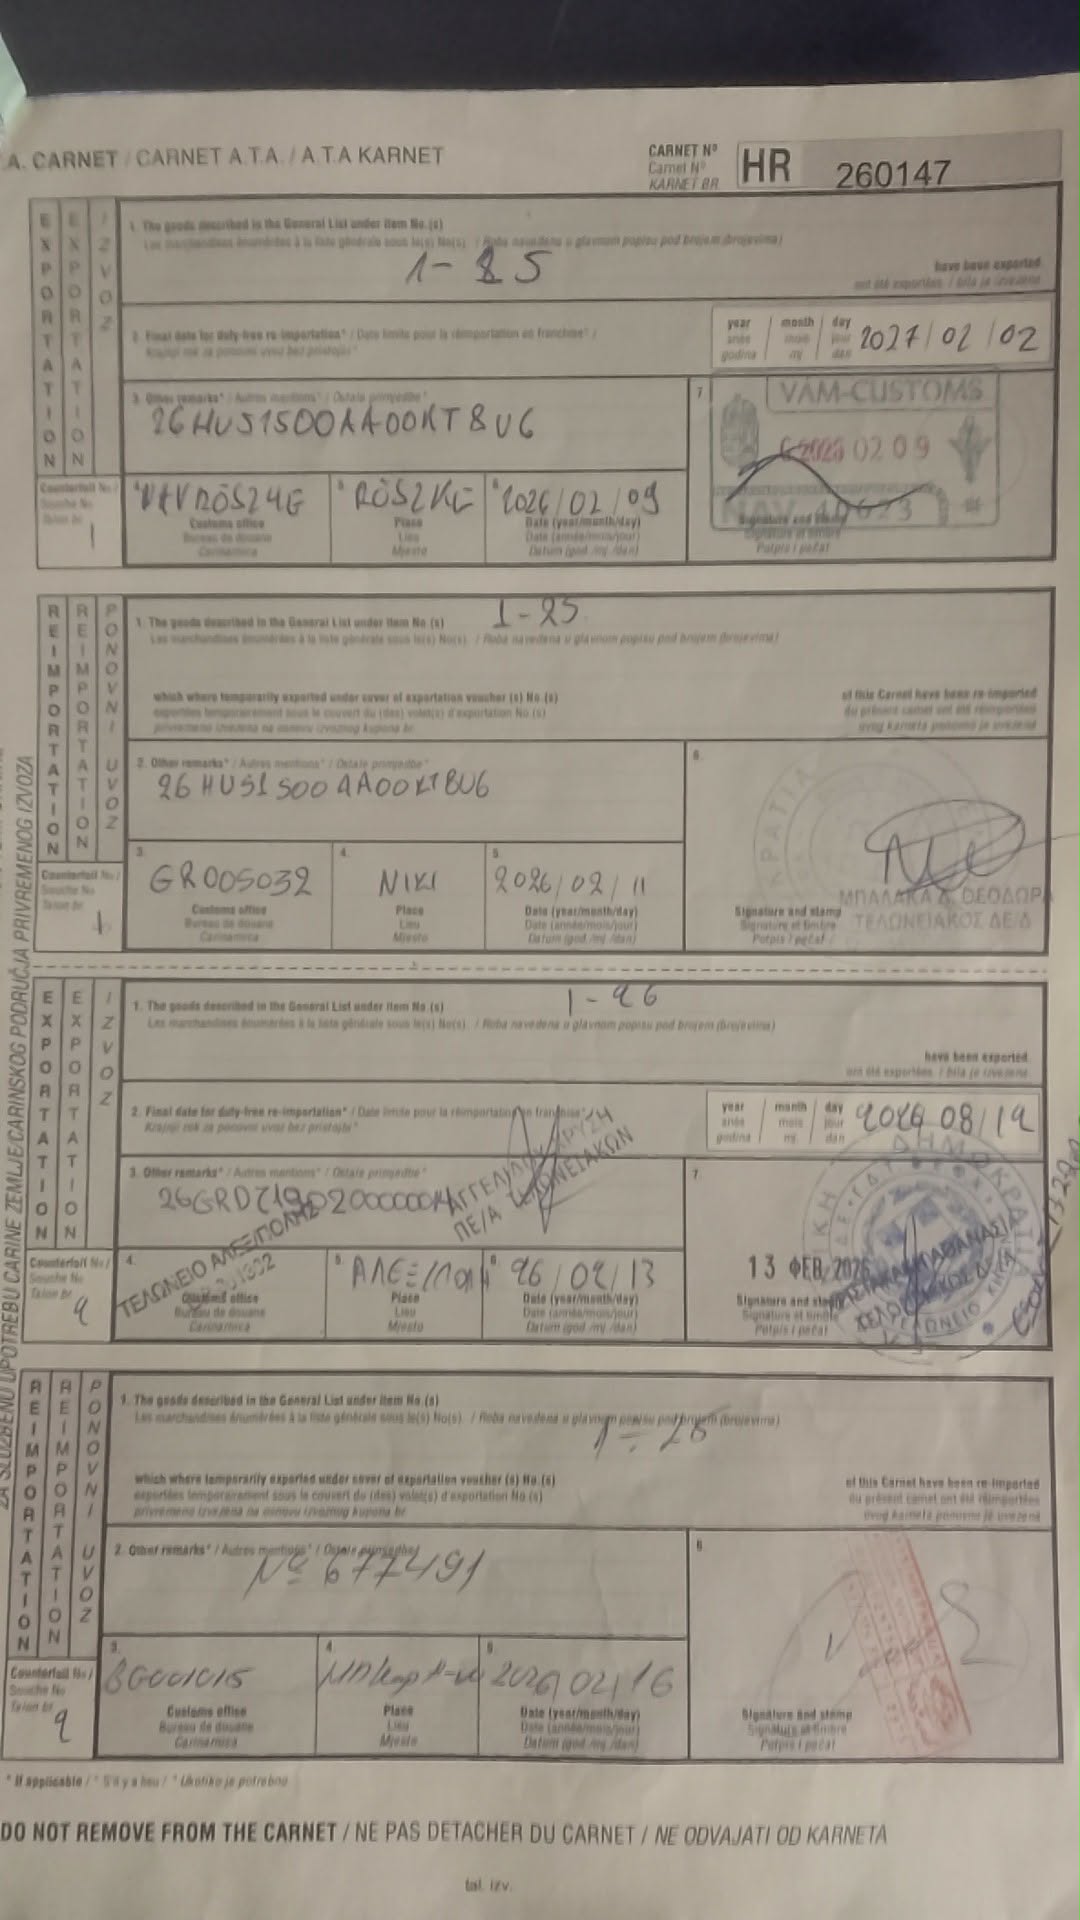 A. CARNET / CARNET A.T.A. / A.T.A KARNET
CARNET Nº
Carnet Nº
KARNET BR.
HR 260147
EXPORTATION
EXPORTATION
IZVOZ
1. The goods described in the General List under item No.(s)
Les marchandises énumérées à la liste générale sous le(s) No(s). / Roba navedena u glavnom popisu pod brojem (brojevima)
1-25
have been exported
ont été exportées / bila je izvezena
2. Final date for duty-free re-importation* / Date limite pour la réimportation en franchise* /
Krajnji rok za ponovni uvoz bez pristojbi*
year / month / day
année / mois / jour
godina / mj. / dan
2027/02/02
3. Other remarks* / Autres mentions* / Ostale primjedbe*
26HUS1500AA00KT8U6
7.
VÁM-CUSTOMS
2026 02 09
NAV
Counterfoil No /
Souche No
Talon br.
1
4.
Customs office
Bureau de douane
Carinarnica
5. RÖSZKE
Place
Lieu
Mjesto
6. 2026/02/09
Date (year/month/day)
Date (année/mois/jour)
Datum (god./mj./dan)
Signature and stamp
Signature et timbre
Potpis i pečat
REIMPORTATION
REIMPORTATION
PONOVNI UVOZ
1. The goods described in the General List under item No.(s)
1-25
Les marchandises énumérées à la liste générale sous le(s) No(s). / Roba navedena u glavnom popisu pod brojem (brojevima)
which where temporarily exported under cover of exportation voucher (s) No.(s)
exportées temporairement sous le couvert du (des) volet(s) d'exportation No.(s)
privremeno izvezena na osnovu izvoznog kupona br.
of this Carnet have been re-imported
du présent carnet ont été réimportées
ovog karneta ponovno je uvezena
2. Other remarks* / Autres mentions* / Ostale primjedbe*
26HUS1500AA00KT8U6
6.
ΚΡΑΤΙΑ
ΜΠΑΛΑΚΑ Δ. ΘΕΟΔΩΡΑ
ΤΕΛΩΝΕΙΑΚΟΣ ΔΕ/Δ
Counterfoil No /
Souche No
Talon br.
1
3. GR005032
Customs office
Bureau de douane
Carinarnica
4. NIKI
Place
Lieu
Mjesto
5. 2026/02/11
Date (year/month/day)
Date (année/mois/jour)
Datum (god./mj./dan)
Signature and stamp
Signature et timbre
Potpis i pečat
EXPORTATION
EXPORTATION
IZVOZ
1. The goods described in the General List under item No.(s)
1-26
Les marchandises énumérées à la liste générale sous le(s) No(s). / Roba navedena u glavnom popisu pod brojem (brojevima)
have been exported
ont été exportées / bila je izvezena
2. Final date for duty-free re-importation* / Date limite pour la réimportation en franchise* /
Krajnji rok za ponovni uvoz bez pristojbi*
year / month / day
année / mois / jour
godina / mj. / dan
2026 08/12
3. Other remarks* / Autres mentions* / Ostale primjedbe*
ΠΕ/Α ΤΕΛΩΝΕΙΑΚΩΝ
7.
13 ΦΕΒ. 2026
Counterfoil No /
Souche No
Talon br.
2
4.
ΤΕΛΩΝΕΙΟ ΑΛΕΞ/ΠΟΛΗΣ
Customs office
Bureau de douane
Carinarnica
5.
Place
Lieu
Mjesto
6. 26/02/13
Date (year/month/day)
Date (année/mois/jour)
Datum (god./mj./dan)
Signature and stamp
Signature et timbre
Potpis i pečat
REIMPORTATION
REIMPORTATION
PONOVNI UVOZ
1. The goods described in the General List under item No.(s)
Les marchandises énumérées à la liste générale sous le(s) No(s). / Roba navedena u glavnom popisu pod brojem (brojevima)
1÷25
which where temporarily exported under cover of exportation voucher (s) No.(s)
exportées temporairement sous le couvert du (des) volet(s) d'exportation No.(s)
privremeno izvezena na osnovu izvoznog kupona br.
of this Carnet have been re-imported
du présent carnet ont été réimportées
ovog karneta ponovno je uvezena
2. Other remarks* / Autres mentions* / Ostale primjedbe*
№ 677491
6.
Counterfoil No /
Souche No
Talon br.
2
3. BG001015
Customs office
Bureau de douane
Carinarnica
4.
Place
Lieu
Mjesto
5. 2026/02/16
Date (year/month/day)
Date (année/mois/jour)
Datum (god./mj./dan)
Signature and stamp
Signature et timbre
Potpis i pečat
* If applicable / * S'il y a lieu / * Ukoliko je potrebno
DO NOT REMOVE FROM THE CARNET / NE PAS DETACHER DU CARNET / NE ODVAJATI OD KARNETA
tal. izv.
ZA SLUŽBENU UPOTREBU CARINE ZEMLJE/CARINSKOG PODRUČJA PRIVREMENOG IZVOZA